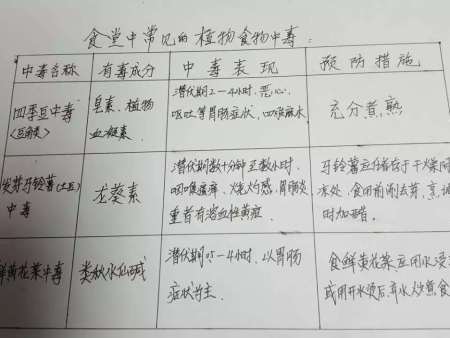 食堂中常见的植物食物中毒:
中毒名称 有毒成分 中毒表现 预防措施
四季豆中毒
(豆角类)
皂素、植物
血凝素
潜伏期2-4小时,恶心、
呕吐等胃肠症状、四肢麻木
充分煮熟
发芽马铃薯(土豆)
中毒
龙葵素
潜伏期数十分钟至数小时,
咽喉瘙痒、烧灼感,胃肠炎
重者有溶血性黄疸
马铃薯应储存于干燥阴
凉处,食用前削去芽,烹调
时加醋。
鲜黄花菜中毒
类秋水仙碱
潜伏期0.5-4小时,以胃肠
症状为主.
食鲜黄花菜应用水浸
或用开水烫后弃水炒煮食